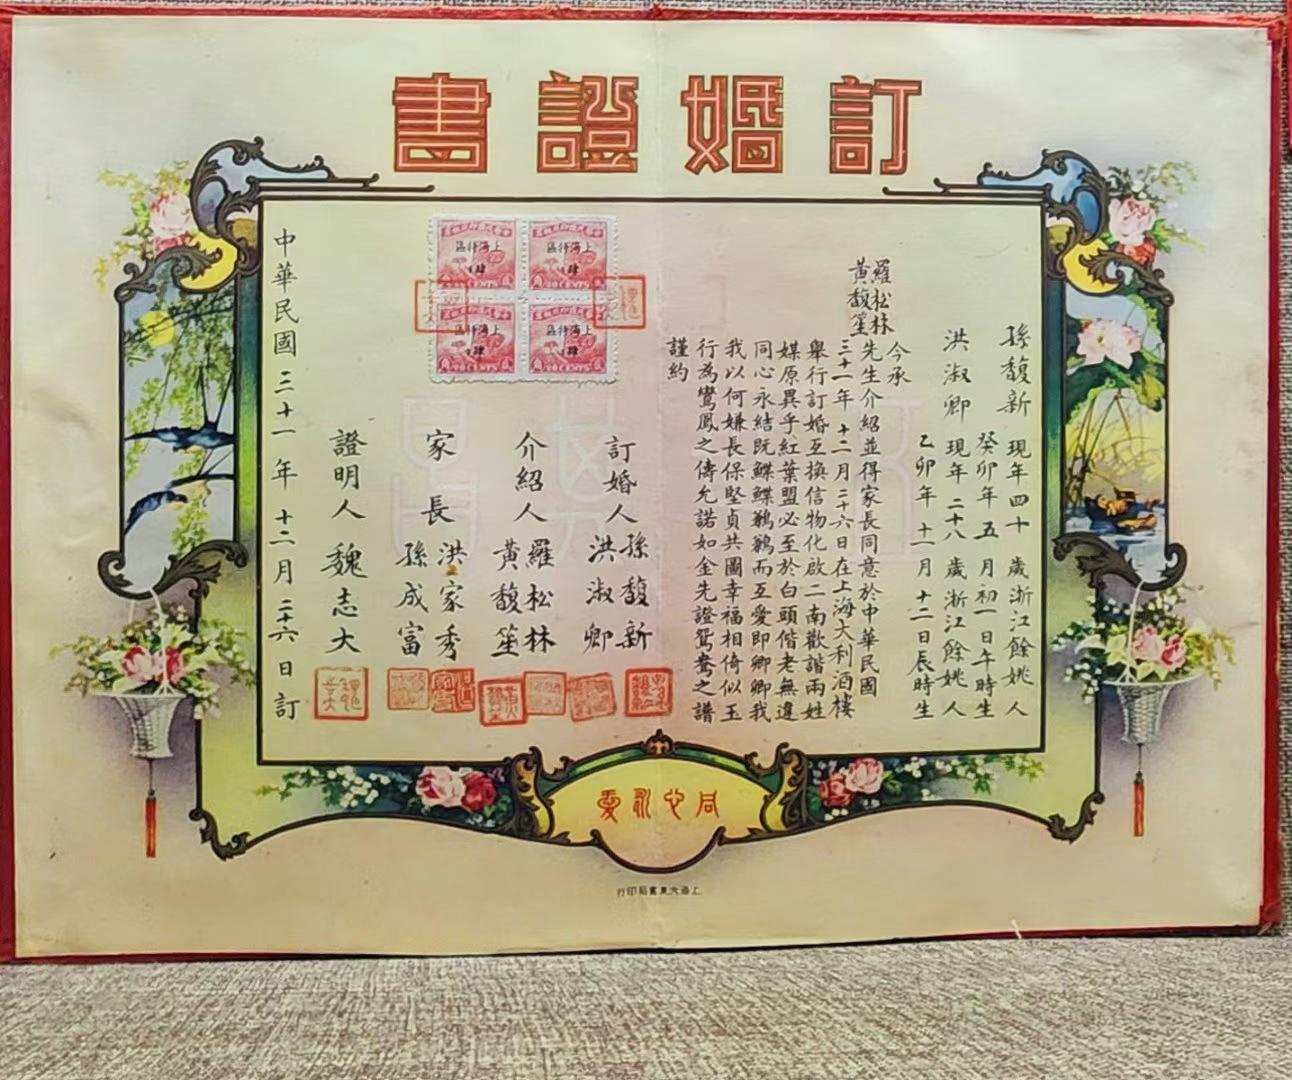 訂婚證書
孫馥新 現年四十歲浙江餘姚人
癸卯年五月初一日午時生
洪淑卿 現年二十八歲浙江餘姚人
乙卯年十一月十二日辰時生
今承
羅松林
黃馥笙
先生介紹並得家長同意於中華民國
三十一年十二月二十六日在上海大利酒樓
舉行訂婚互換信物化啟二南歡諧兩姓
媒原異乎紅葉盟必至於白頭偕老無違
同心永結既鰈鰈鶼鶼而互愛即卿卿我
我以何嫌長保堅貞共圖幸福相倚似玉
行為鸞鳳之儔允諾如金先證鴛鴦之譜
謹約
訂婚人 孫馥新
洪淑卿
介紹人 羅松林
黃馥笙
家長 洪家秀
孫成富
證明人 魏志大
中華民國三十一年十二月二十六日訂
上海特區
肆角
20CENTS
上海特區
肆角
20CENTS
上海特區
肆角
20CENTS
上海特區
肆角
20CENTS
同心永愛
上海大東書局印行